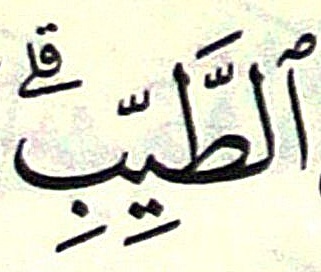 ٱلطَّيِّبِۗ